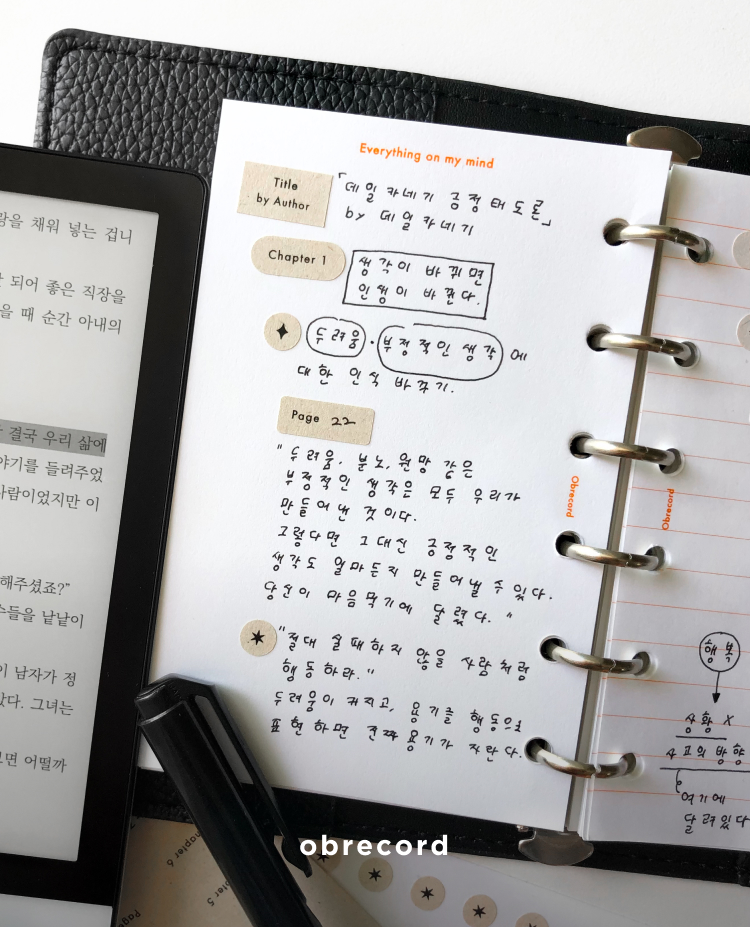 Everything on my mind
Title
by Author
「데일 카네기 긍정태도론」
by 데일 카네기
Chapter 1
생각이 바뀌면
인생이 바뀐다.
두려움 · 부정적인 생각 에
대한 인식 바꾸기.
Page 22
"두려움, 분노, 원망 같은
부정적인 생각은 모두 우리가
만들어낸 것이다.
그렇다면 그대신 긍정적인
생각도 얼마든지 만들어낼 수 있다.
당신이 마음먹기에 달렸다. "
"절대 실패하지 않을 사람처럼
행동하라."
두려움이 커지고, 용기를 행동으로
표현하면 진짜 용기가 자란다.
Obrecord
Obrecord
행복
상황 X
사고의 방향
여기에
달려있다
람을 채워 넣는 겁니
되어 좋은 직장을
을 때 순간 아내의
결국 우리 삶에
야기를 들려주었
사람이었지만 이
해주셨죠?"
수들을 낱낱이
이 남자가 정
았다. 그녀는
보면 어떨까
obrecord
Chapter 6
Chapter 5
Page